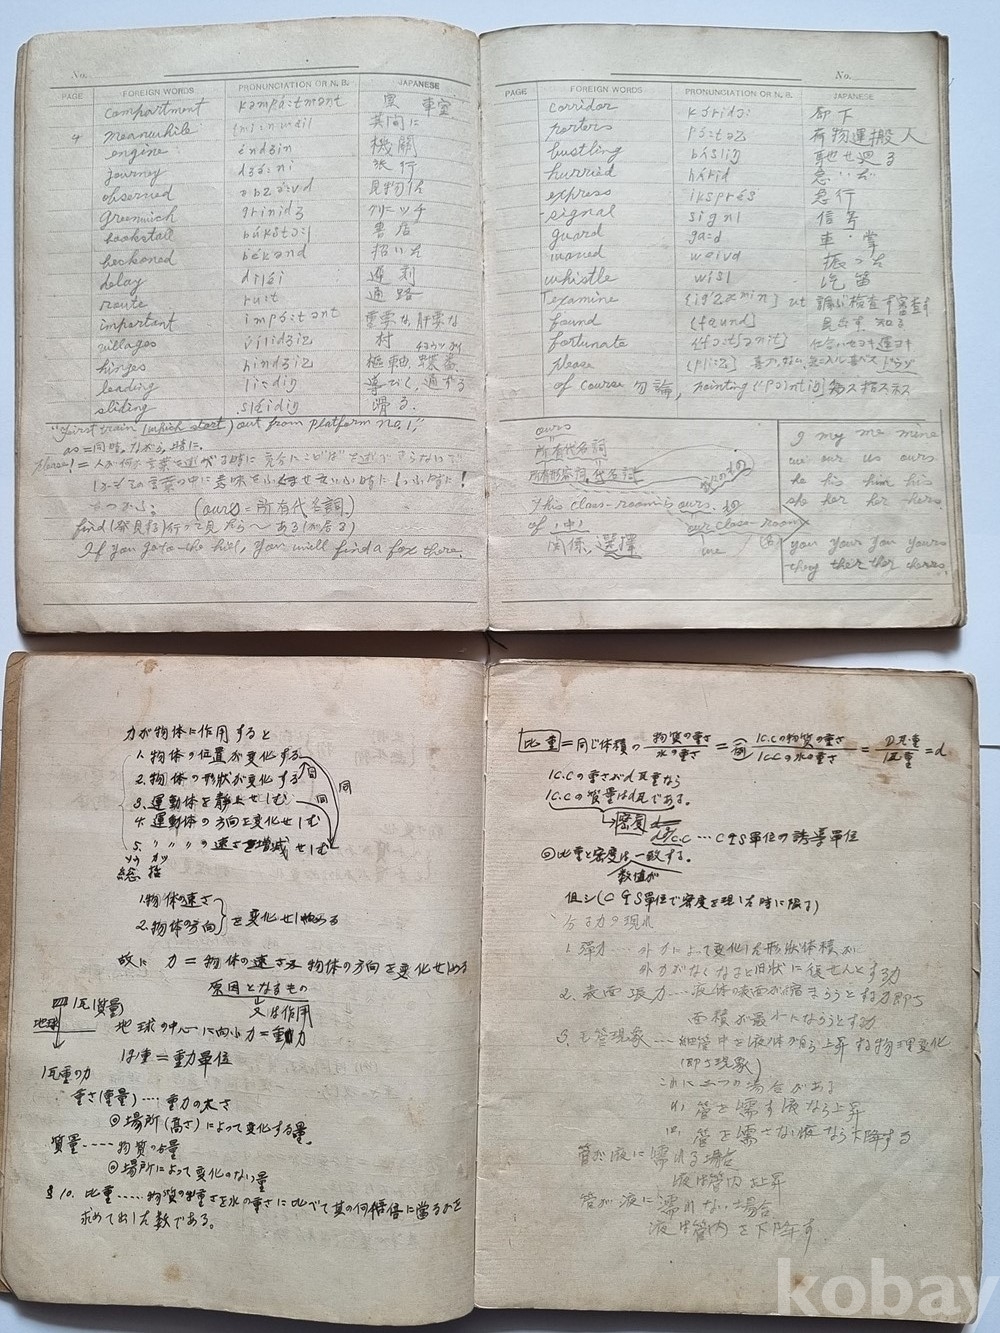 No.
PAGE FOREIGN WORDS PRONUNCIATION OR N. B. JAPANESE
compartment kəmpáːtmənt 室 車室
4 meanwhile 其間に
engine éndʒin 機關
journey dʒə́ːni 旅行
observed əbzə́ːvd 見物した
Greenwich grinidʒ グリニッチ
bookstall búkstɔːl 書店
beckoned békənd 招いた
delay diléi 遅刻
route ruːt 通路
important impɔ́ːtənt 重要な, 肝要な
villages vílidʒiz 村
hinges híndʒiz 樞軸, 蝶番
leading líːdiŋ 導びく, 通ずる
sliding sláidiŋ 滑る.
"First train (which start) out from platform no.1,"
as = 同時, ながら, 時に.
please! =
(ours = 所有代名詞.)
find (発見する) 行って見たら〜ある(が居る)
If you go to the hill, you will find a fox there.
No.
PAGE FOREIGN WORDS PRONUNCIATION OR N. B. JAPANESE
corridor kɔ́ridɔː 廊下
porters pɔ́ːtəz 荷物運搬人
bustling bʌ́sliŋ 馳せ廻る
hurried hʌ́rid 急いだ
express iksprés 急行
signal signl 信号
guard gaːd 車掌
waved weivd 振った
whistle wisl 汽笛
examine [igzæmin] vt 検査す 審査す
found [faund] 見出す 知る
fortunate [fɔːt∫ənit]
please [pliːz]
of course 勿論, pointing [pɔintiŋ]
ours
所有代名詞
所有形容詞 代名詞
This class-room is ours. の
of (中) our class-room
関係, 選擇
I my me mine
we our us ours
he his him his
she her her hers
you your you yours
they ther ther thers
力が物体に作用すると
1. 物体の位置が変化する
2. 物体の形状が変化する 同
3. 運動体を静止せしむ 同 同
4. 運動体の方向を変化せしむ
5. 〃 〃 〃 の速さを増減せしむ
総括
1. 物体の速さ
2. 物体の方向 を変化せしめる
故に 力 = 物体の速さ又物体の方向を変化せしめる
原因となるもの
又は作用
1瓦(質量)
地球 地球の中心に向ふ力 = 重力
重 = 重力單位
1瓦重の力
重さ(重量)‥‥重力の大さ
◎場所(高さ)によって変化する量。
質量‥‥物質の分量
◎場所によって変化のない量
§10. 比重‥‥物質の重さを水の重さに比べて其の何倍に當るかを
求めて出した数である。
比重 = 同じ体積の 物質の重さ/水の重さ = 1c.cの物質の重さ/1c.cの水の重さ = d瓦重/1瓦重 = d
1c.cの重さがd瓦重なら
1c.cの質量はd瓦である。
密度 c.c … CGS單位の誘導單位
◎比重と密度は一致する。
数値が
但シ(CGS單位で密度を現した時に限る)
分子力の現れ
1. 彈力‥‥外力によって変化した形状体積が
外力がなくなると旧状に復せんとする力
2. 表面張力‥‥液体の表面が縮まらうとする力即ち
面積が最小にならうとす力
3. 毛管現象‥‥細管中を液体が自ら上昇する物理変化
(即ち現象)
これに二つの場合がある
(1) 管を濡す液なら上昇
(2) 管を濡さない液なら下降する
管が液に濡れる場合
液は管内上昇
管が液に濡れない場合
液は管内を下降す
kobay